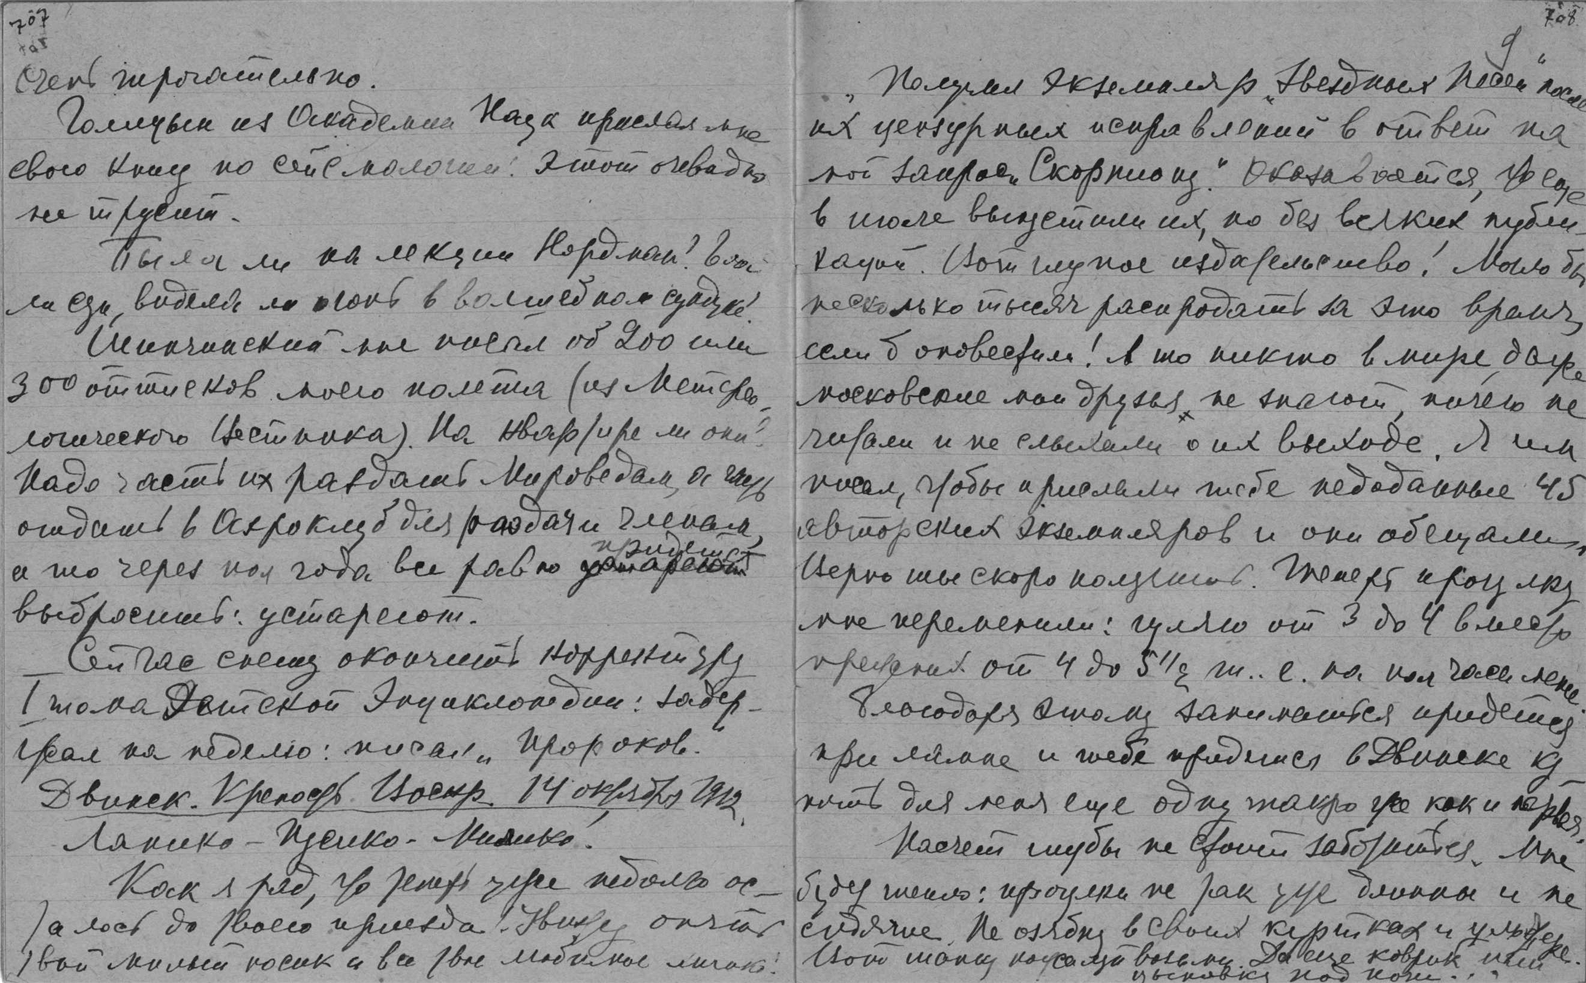 707
очень трогательно.
Голицын из Академии Наук прислал мне
свою книгу по сейсмологии! Этот очевидно
не трусит.
Была ли на лекции Нордман? Была
ли еда, видела ли огонь в волшебном сундуке?
Шипчинский мне писал об 200 или
300 оттисков моего полета (из Метеоро-
логического Вестника). На квартире ли они?
Надо часть их раздать Мироведам, а часть
отдать в Аэроклуб для раздачи членам,
а то через пол года все равно придется
выбросить: устареют.
Сейчас спешу окончить корректуру
I тома Детской Энциклопедии: задер-
жал на неделю: писал „Пророков."
Двинск. Крепость. Воскр. 14 октября 1912.
Ляпико - Пусико - Милико!
Как я рад, что теперь уже недолго ос-
талось до твоего приезда! Увижу опять
твой милый носик и все твое любимое личико!
708
9
Получил экземпляр „Звездных Песен" после
их цензурных исправлений в ответ на
мой запрос „Скорпиону". Оказывается, что еще
в июле выпустили их, но без всяких публи-
каций. Вот глупое издательство! Могло бы
несколько тысяч распродать за это время,
если б оповестили! А то никто в мире, даже
московские мои друзья, не знают, ничего не
читали и не слыхали о их выходе. Я им
писал, чтобы прислали тебе недоданные 45
авторских экземпляров и они обещались.
Верно ты скоро получишь. Теперь прогулку
мне переменили: гуляю от 3 до 4 вместо
прежних от 4 до 5 1/2 т. е. на пол часа менее.
Благодаря этому заниматься придется
при лампе и тебе придется в Двинске ку-
пить для меня еще одну такую же как и первая.
Насчет шубы не стоит заботиться. Мне
будет тепло: прогулки не так уже длинны и не
сидячие. Не озябну в своих куртках и
Вот только возьми. Да еще коврик или
цыновку под ноги...